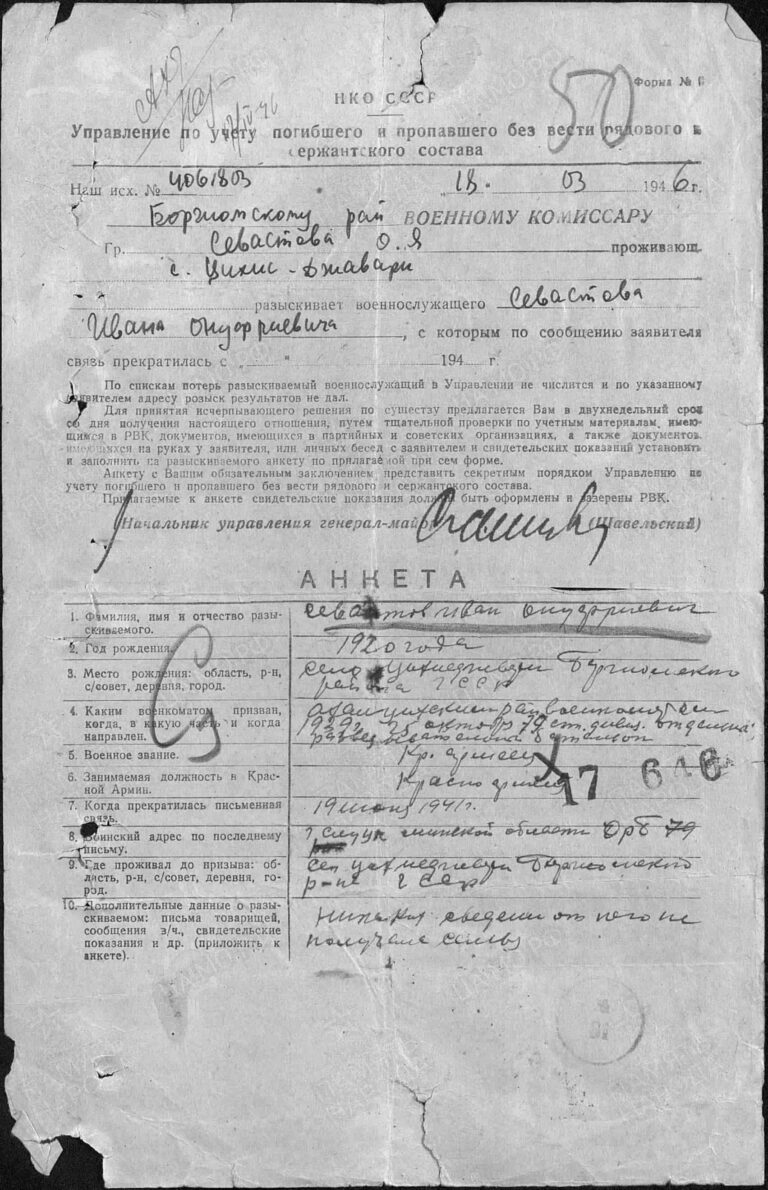 Форма №
НКО СССР
50
Управление по учету погибшего и пропавшего без вести рядового и
сержантского состава
Наш исх. № 4061803 18. 03 1946 г.
Боржомскому рай ВОЕННОМУ КОМИССАРУ
Гр. Севастова О.Я проживающ.
с. Цихис-Джвари
разыскивает военнослужащего Севастова
Ивана Онуфриевича, с которым по сообщению заявителя
связь прекратилась с „ " 194 г.
По спискам потерь разыскиваемый военнослужащий в Управлении не числится и по указанному
заявителем адресу розыск результатов не дал.
Для принятия исчерпывающего решения по существу предлагается Вам в двухнедельный срок
со дня получения настоящего отношения, путем тщательной проверки по учетным материалам, имею-
щимся в РВК, документов, имеющихся в партийных и советских организациях, а также документов,
имеющихся на руках у заявителя, или личных бесед с заявителем и свидетельских показаний установить
и заполнить на разыскиваемого анкету по прилагаемой при сем форме.
Анкету с Вашим обязательным заключением представить секретным порядком Управлению по
учету погибшего и пропавшего без вести рядового и сержантского состава.
Прилагаемые к анкете свидетельские показания должны быть оформлены и заверены РВК.
Начальник управления генерал-майор (Шавельский)
АНКЕТА
1. Фамилия, имя и отчество разы-
скиваемого.
Севастов Иван Онуфриевич
2. Год рождения.
1920 года
3. Место рождения: область, р-н,
с/совет, деревня, город.
село
района ГССР
4. Каким военкоматом призван,
когда, в какую часть и когда
направлен.
5. Военное звание.
Кр. армеец
6. Занимаемая должность в Крас-
ной Армии.
Красноармеец
17 646
7. Когда прекратилась письменная
связь.
19 июня 1941 г.
8. Воинский адрес по последнему
письму.
г Слуцк Минской области ОРБ 79
9. Где проживал до призыва: об-
ласть, р-н, с/совет, деревня, го-
род.
р-на ГССР
10. Дополнительные данные о разы-
скиваемом: письма товарищей,
сообщения з/ч., свидетельские
показания и др. (приложить к
анкете).
сведении от него не